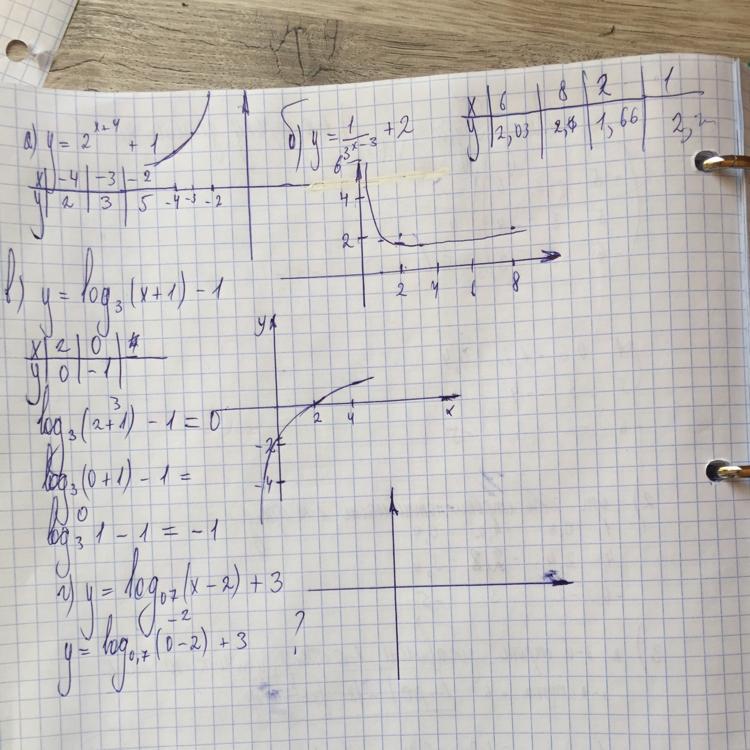 а) y = 2^(x+4) + 1
x | -4 | -3 | -2
y | 2 | 3 | 5
-4 -3 -2
б) y = 1/(3^x - 3) + 2
x | 6 | 8 | 2 | 1
y | 2,03 | | 1,66 |
6
4
2
2 4 6 8
в) y = log₃(x+1) - 1
x | 2 | 0 |
y | 0 | -1 |
log₃(2+1) - 1 = 0
3
log₃(0+1) - 1 =
0
log₃ 1 - 1 = -1
y
2 4 x
-2
-4
г) y = log₀₇(x-2) + 3
-2
y = log₀,₇(0-2) + 3 ?